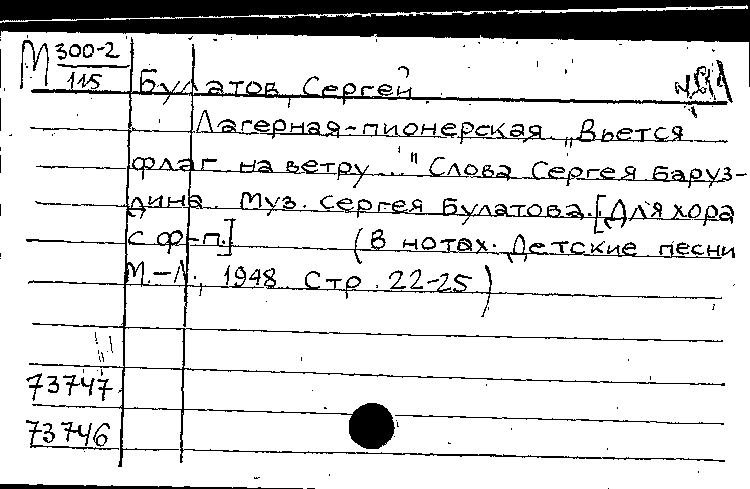 М 300-2
115
Булатов, Сергей
Лагерная-пионерская „Вьется
флаг на ветру..." Слова Сергея Баруз-
дина. Муз. Сергея Булатова. [Для хора
с ф-п.] (В нотах: Детские песни
М.-Л., 1948. Стр. 22-25)
73747
73746